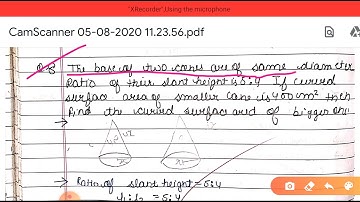 "XRecorder",Using the microphone
CamScanner 05-08-2020 11.23.56.pdf
Q-8 The base of two cones are of same diameter
Ratio of their slant height is 5:4 If curved
surface area of smaller cone is 400cm² then
find the curved surface area of bigger one
→ Ratio of slant height = 5:4
l₁:l₂ = 5:4